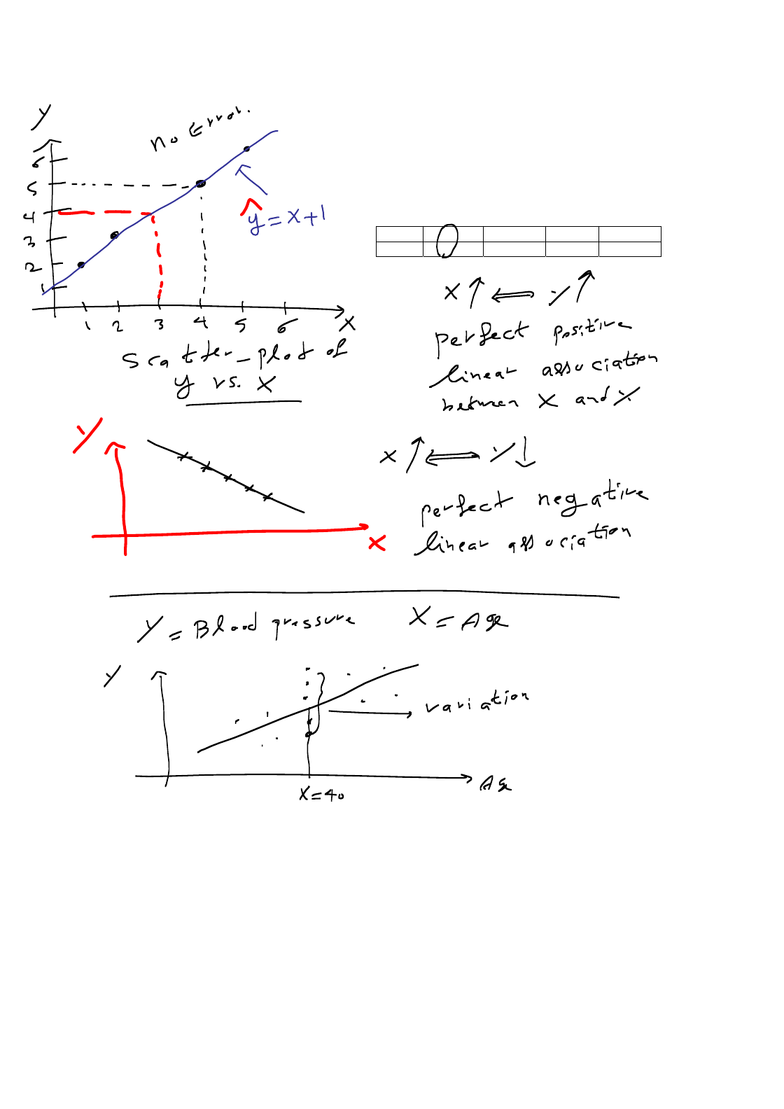 y
no Error.
6
5
4
3
2
1
ŷ = x+1
1 2 3 4 5 6 X
Scatter-plot of
y vs. X
X ↑ ⟺ y ↑
perfect positive
linear association
between X and Y
y
x
X ↑ ⟺ y ↓
perfect negative
linear association
Y = Blood pressure X = Age
y
variation
X=40
Age